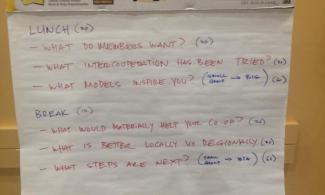 LUNCH
- WHAT DO MEMBERS WANT?
- WHAT INTERCOOPERATION HAS BEEN TRIED?
- WHAT MODELS INSPIRE YOU? (SMALL GROUP → BIG)
BREAK
- WHAT WOULD MATERIALLY HELP YOUR CO-OP?
- WHAT IS BETTER LOCALLY VS REGIONALLY
- WHAT STEPS ARE NEXT? (SMALL GROUP → BIG)